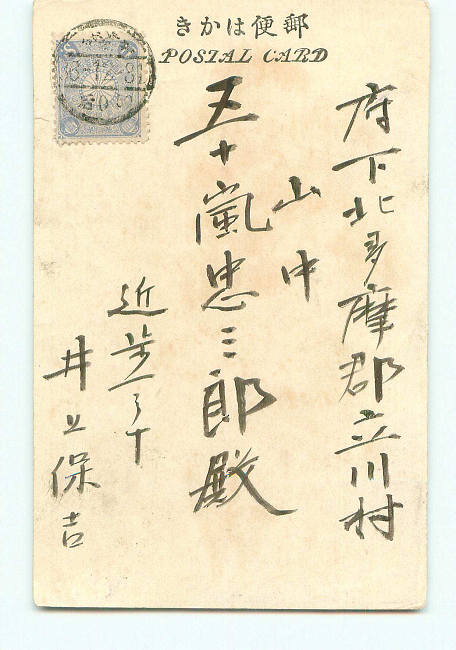 郵便はかき
POSTAL CARD
府下北多摩郡立川村
山中
五十嵐忠三郎殿
近歩一ノ十
井上保吉